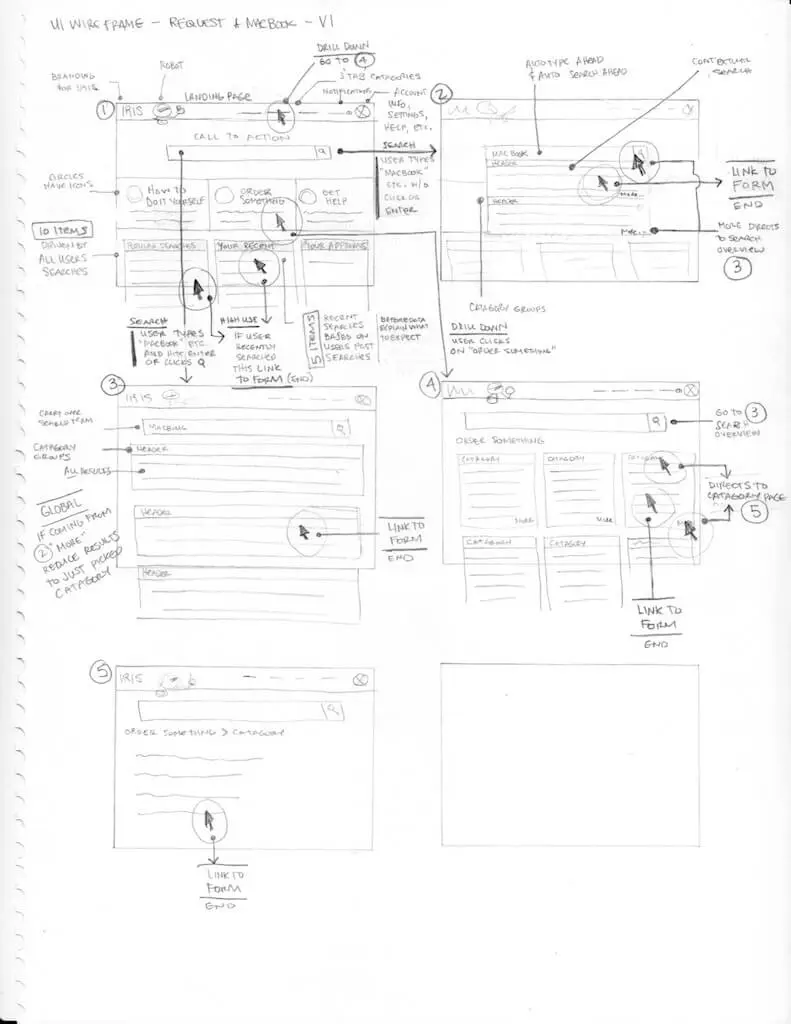 UI WIREFRAME - REQUEST A MACBOOK - V1
BRANDING
FOR IRIS
ROBOT
LANDING PAGE
DRILL DOWN
GO TO 4
3 TAB CATAGORIES
NOTIFICATIONS
ACCOUNT
INFO,
SETTINGS,
HELP, ETC.
1
IRIS
CALL TO ACTION
SEARCH
USER TYPES
"MACBOOK"
ETC. W/O
CLICK OR
ENTER
CIRCLES
HAVE ICONS
HOW TO
DO IT YOURSELF
ORDER
SOMETHING
GET
HELP
10 ITEMS
DRIVEN BY
ALL USERS
SEARCHES
POPULAR SEARCHES
YOUR RECENT
YOUR APPROVALS
SEARCH
USER TYPES
"MACBOOK" ETC.
AND HITS ENTER
OR CLICKS
HIGH USE
IF USER
RECENTLY
SEARCHED
THIS LINK
TO FORM (END)
5 ITEMS
RECENT
SEARCHES
BASED ON
USERS PAST
SEARCHES
BEFORE DATA
EXPLAIN WHAT
TO EXPECT
2
AUTO TYPE AHEAD
& AUTO SEARCH AHEAD
CONTEXTUAL
SEARCH
MAC BOOK
HEADER
MORE..
HEADER
MORE..
LINK TO
FORM
END
MORE DIRECTS
TO SEARCH
OVERVIEW
3
CATEGORY GROUPS
DRILL DOWN
USER CLICKS
ON "ORDER SOMETHING"
3
IRIS
CARRY OVER
SEARCH TERM
CATAGORY
GROUPS
HEADER
ALL RESULTS
GLOBAL
IF COMING FROM
2 "MORE"
REDUCE RESULTS
TO JUST PICKED
CATAGORY
HEADER
LINK TO
FORM
END
HEADER
4
GO TO 3
SEARCH
OVERVIEW
ORDER SOMETHING
CATAGORY
CATAGORY
CATAGORY
MORE
MORE
DIRECTS TO
CATAGORY PAGE
5
CATAGORY
CATAGORY
LINK TO
FORM
END
5
IRIS
ORDER SOMETHING > CATAGORY
LINK TO
FORM
END